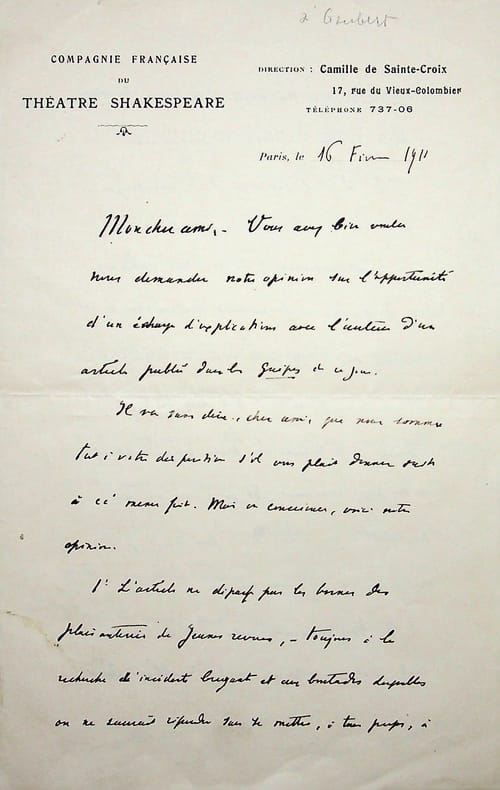 à Goubert
COMPAGNIE FRANÇAISE
DU
THÉATRE SHAKESPEARE
DIRECTION : Camille de Sainte-Croix
17, rue du Vieux-Colombier
TÉLÉPHONE 737-06
Paris, le 16 1911
Mon cher ami, - Vous avez bien voulu
nous demander notre opinion sur l'opportunité
d'un échange d'explications avec l'auteur d'un
article publié dans les Guêpes de ce jour.
Il va sans dire, cher ami, que nous sommes
tout à votre disposition s'il vous plaît donner suite
à ce menu fait. Mais en conscience, voici notre
opinion.
1° L'article ne dépasse pas les bornes des
plaisanteries de jeunes revues, - toujours à la
recherche d'incidents bruyants et aux boutades desquelles
on ne saurait répondre sans se mettre, à tout propos, à